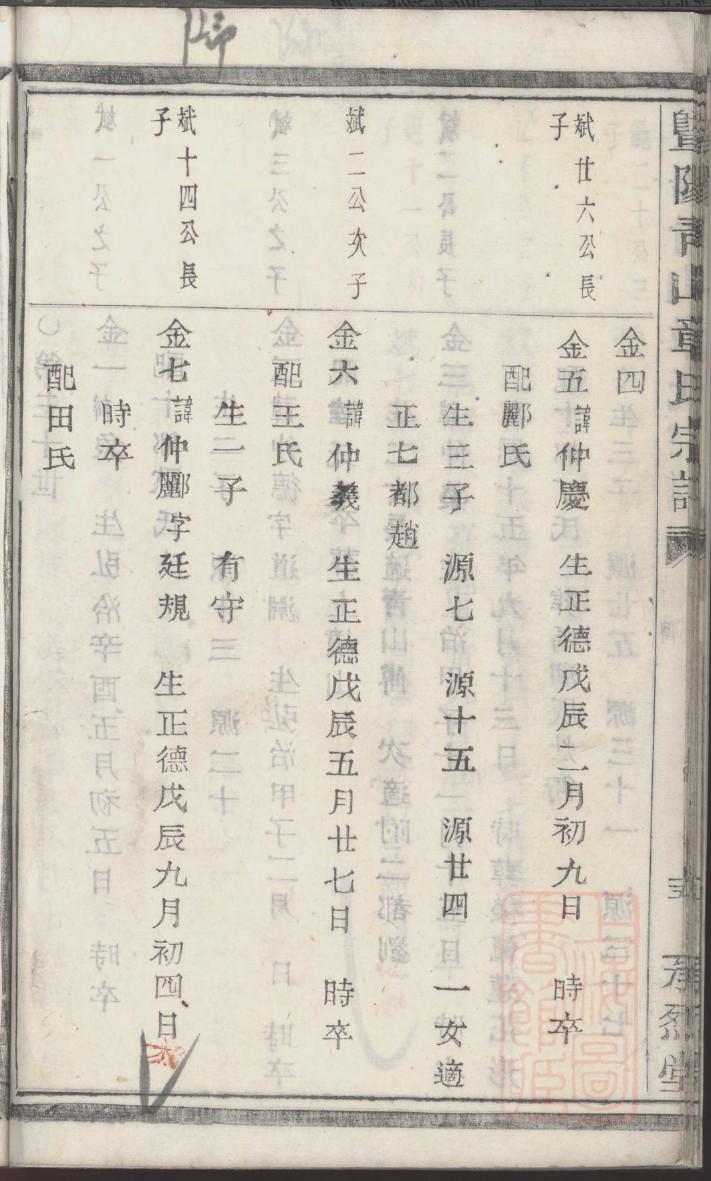 暨陽青山章氏宗譜
承烈堂
金四
斌廿六公長子
金五 諱仲慶 生正德戊辰二月初九日 時卒
配酈氏
生三子 源七 源十五 源廿四 一女適
正七都趙
斌二公次子
金六 諱仲義 生正德戊辰五月廿七日 時卒
配王氏
生一子 有守三
斌十四公長子
金七 諱仲酈字廷規 生正德戊辰九月初四日
時卒
配田氏